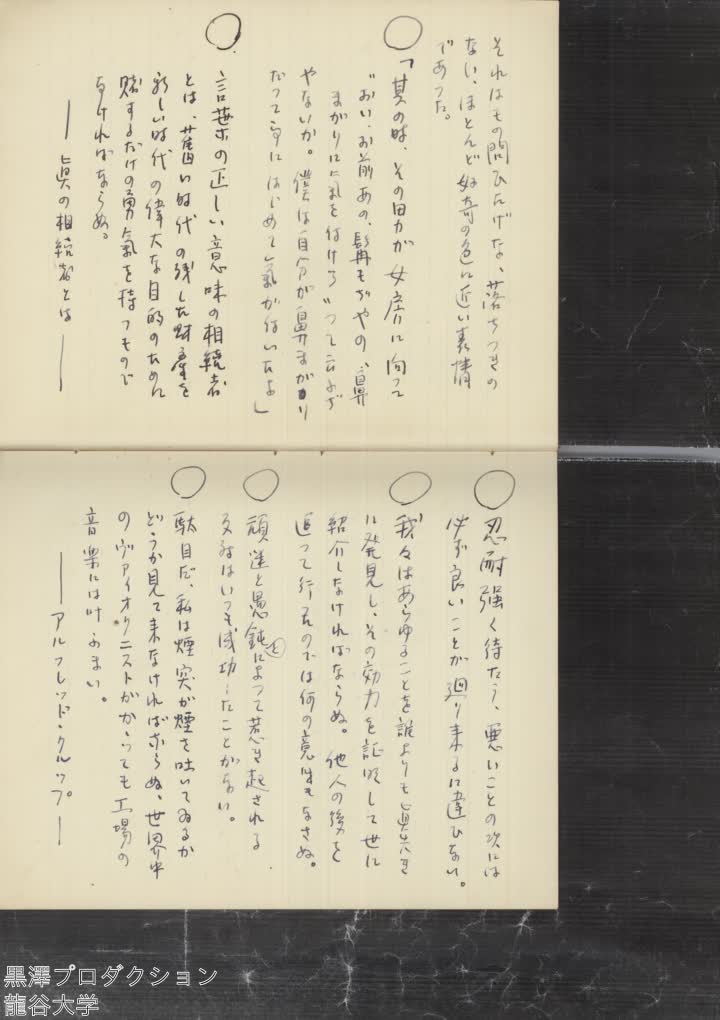 それはもの問ひたげな、落ちつきの
ない、ほとんど好奇の色に近い表情
であった。
○「其の時、その男が女房に向って
“おい、お前あの、髯もぢやの、鼻
まがりに気を付けろ”って云ふぢ
やないか。僕は自分が鼻まがり
だって事にはじめて気が付いたよ」
○言葉の正しい意味の相続者
とは、舊い時代の残した財産を
新しい時代の偉大な目的のために
賭するだけの勇氣を持つもので
なければならぬ。
――眞の相続者とは――
○忍耐強く待たう、悪いことの次には
必ず良いことが廻り来るに違ひない。
○我々はあらゆることを誰よりも眞先き
に発見し、その効力を証明して世に
紹介しなければならぬ。他人の後を
追って行ったのでは何の意味もなさぬ。
○頑迷と愚鈍とによって惹き起される
はいつも成功したことがない。
○駄目だ、私は煙突が煙を吐いてゐるか
どうか見て来なければならぬ、世界中
のヴァイオリニストがかかっても工場の
音楽には叶ふまい。
――アルフレッド・クルップ――
黒澤プロダクション
龍谷大学